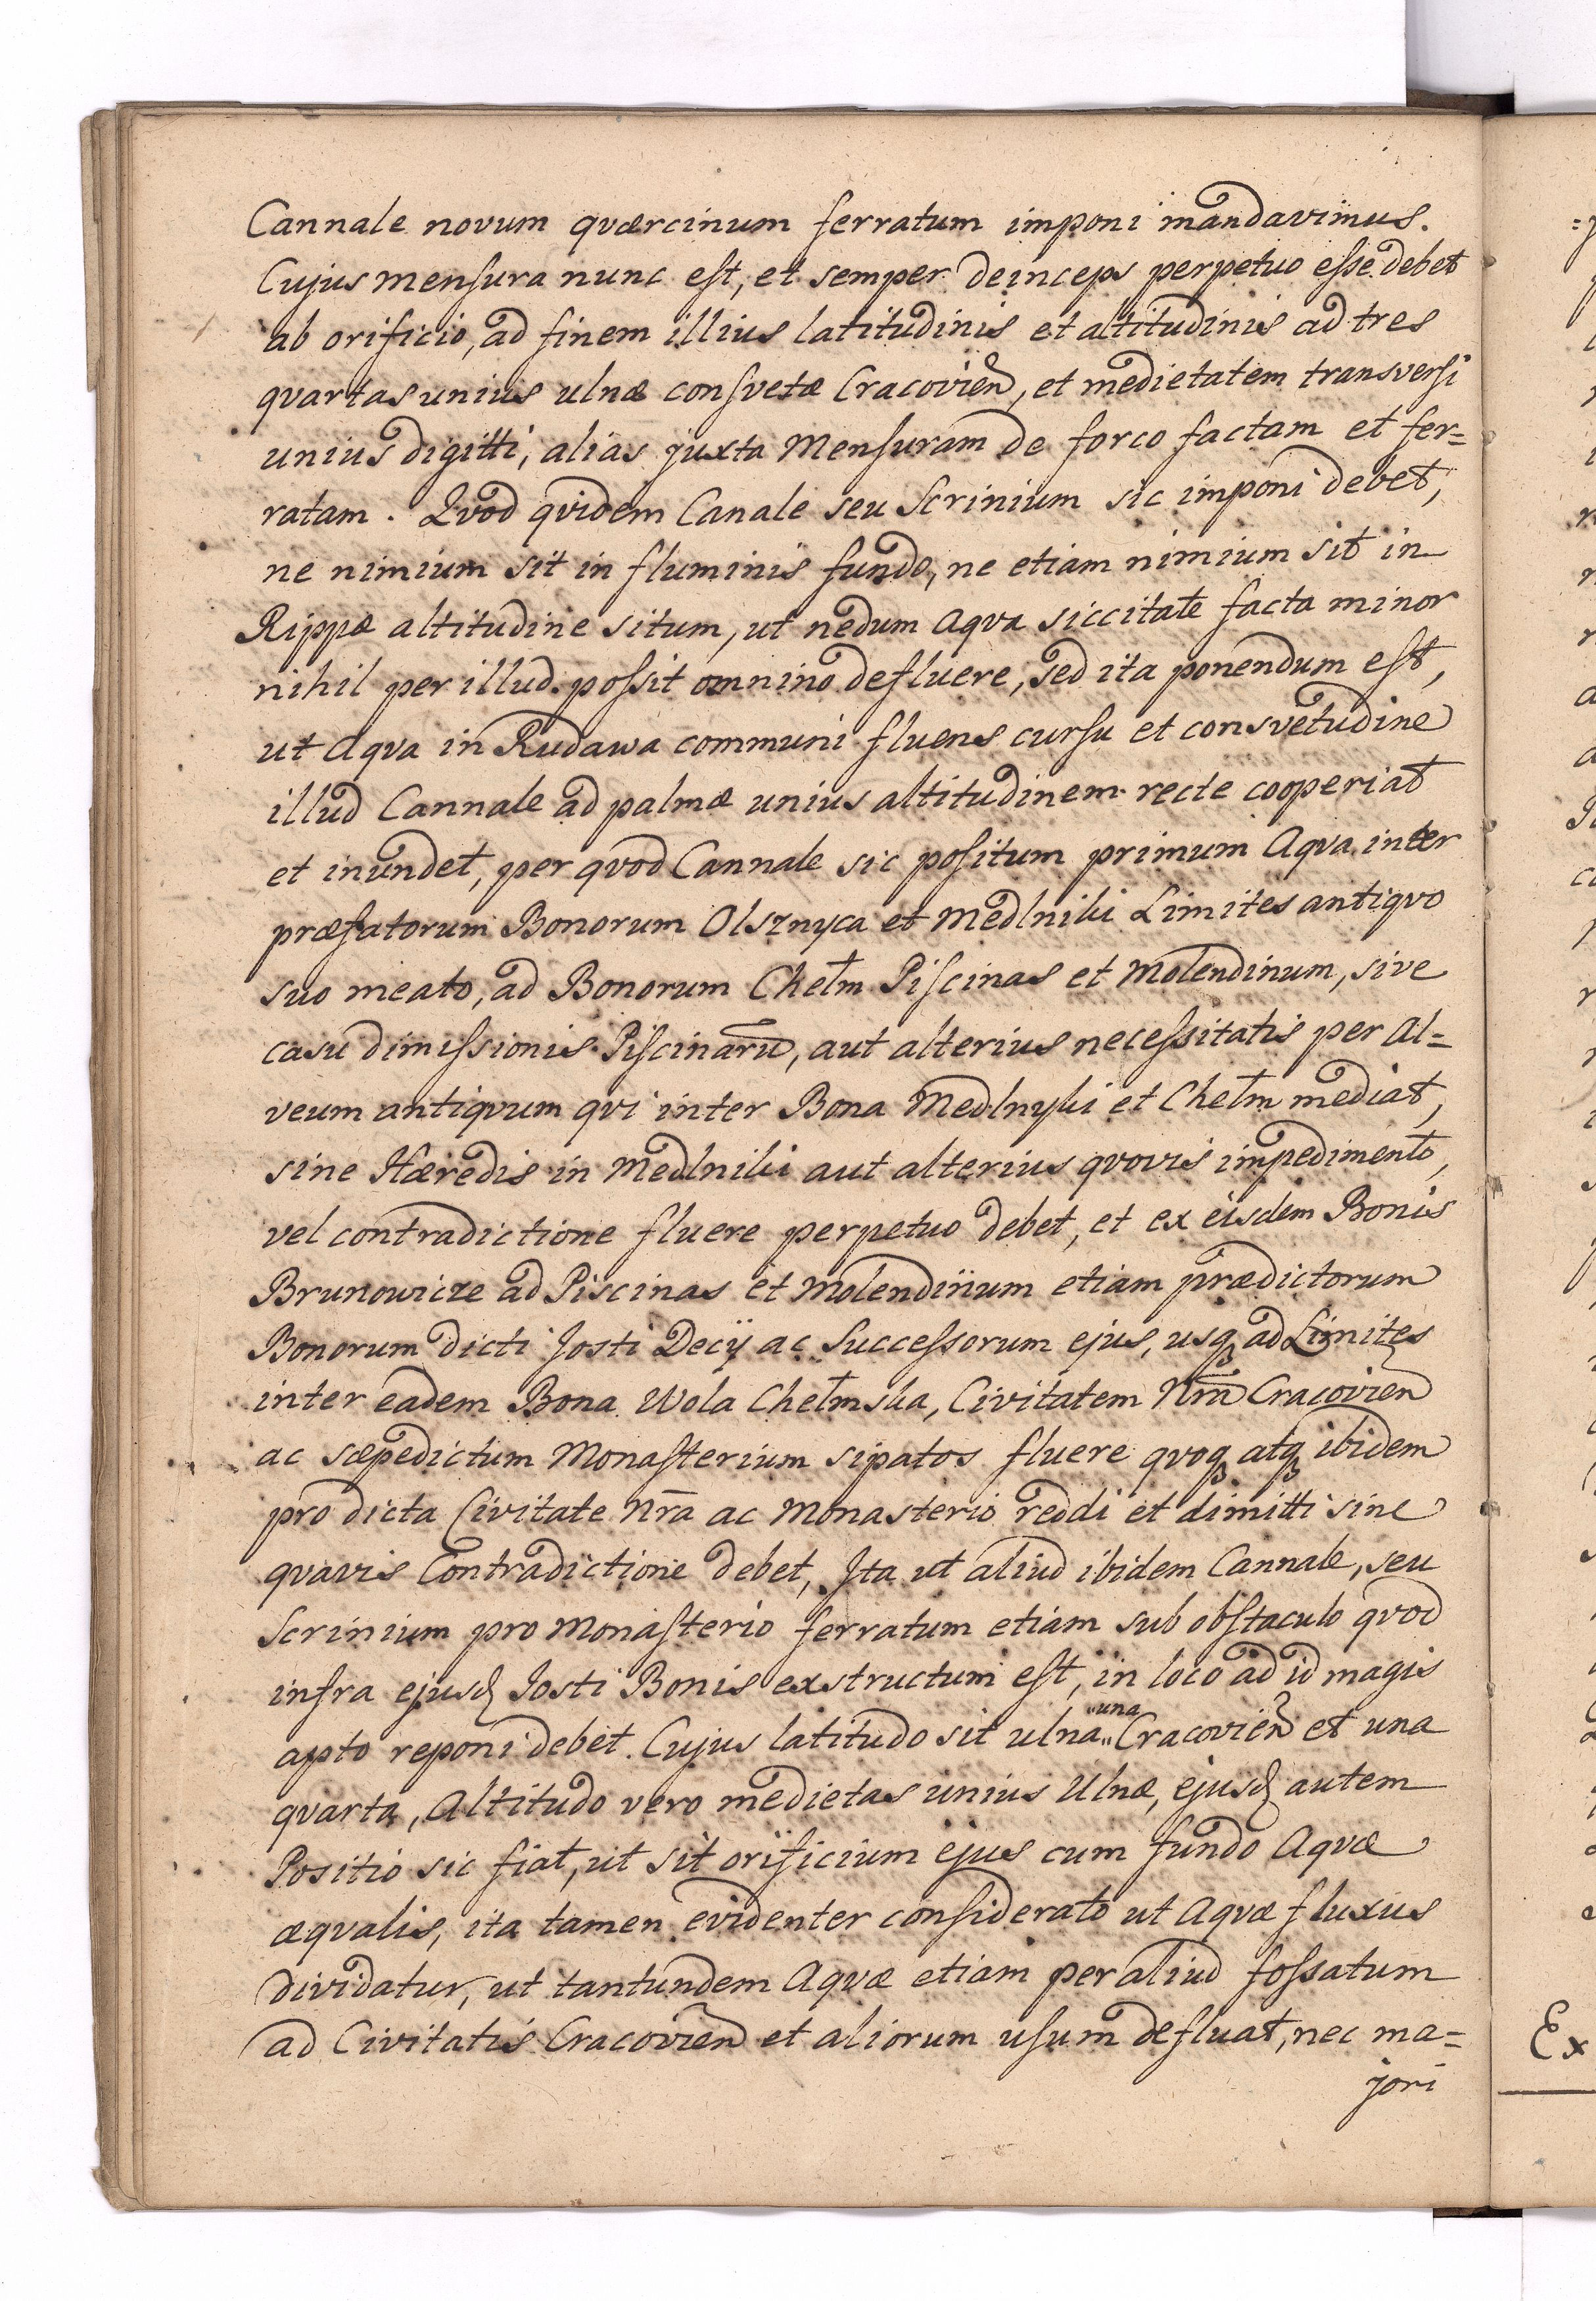 Cannale novum quærcinum ferratum imponi mandavimus.
Cujus mensura nunc est, et semper deinceps perpetuo esse debet
ab orificio, ad finem illius latitudinis et altitudinis ad tres
qvartas unius ulnæ consvetæ Cracovien, et medietatem transversi
unius digitti, alias juxta Mensuram de forco factam et fer=
ratam. Qvod qvidem Canale seu Scrinium sic imponi debet,
ne nimium sit in fluminis fundo, ne etiam nimium sit in
Rippæ altitudine situm, ut nedum Aqva siccitate facta minor
nihil per illud possit omnino defluere, sed ita ponendum est,
ut Aqva in Rudawa communi fluens cursu et consvetudine
illud Cannale ad palmæ unius altitudinem recte cooperiat
et inundet, per qvod Cannale sic positum primum Aqva inter
præfatorum Bonorum Olsznyca et Medlniki Limites antiqvo
suo meato, ad Bonorum Chełm Piscinas et Molendinum, sive
casu dimissionis Piscinarū, aut alterius necessitatis per Al=
veum antiqvum qvi inter Bona Medlnyki et Chełm mediat,
sine Hæredis in Medlniki aut alterius qvovis impedimento,
vel contradictione fluere perpetuo debet, et ex eisdem Bonis
Brunowicze ad Piscinas et Molendinum etiam prædictorum
Bonorum dicti Josti Decij ac Successorum ejus, usqꝫ ad Limites
inter eadem Bona Wola Chełmska, Civitatem Nrm̄ Cracovien
ac sæpedictum Monasterium sipatos fluere qvoqꝫ atqꝫ ibidem
pro dicta Civitate Nr̄a ac Monasterio reddi et dimitti sine
qvavis Contradictione debet, Ita ut aliud ibidem Cannale, seu
Scrinium pro Monasterio ferratum etiam sub obstaculo qvod
infra ejusd Josti Bonis exstructum est, in loco ad id magis
apto reponi debet. Cujus latitudo sit ulna "una" Cracovien et una
qvarta, Altitudo vero medietas unius Ulnæ, ejusd autem
Positio sic fiat, ut sit orificium ejus cum fundo Aqvæ
æqvalis, ita tamen evidenter considerato ut Aqvæ fluxus
dividatur, ut tantundem Aqvæ etiam per aliud fossatum
ad Civitatis Cracovien et aliorum usum defluat, nec ma=
jori
Ex